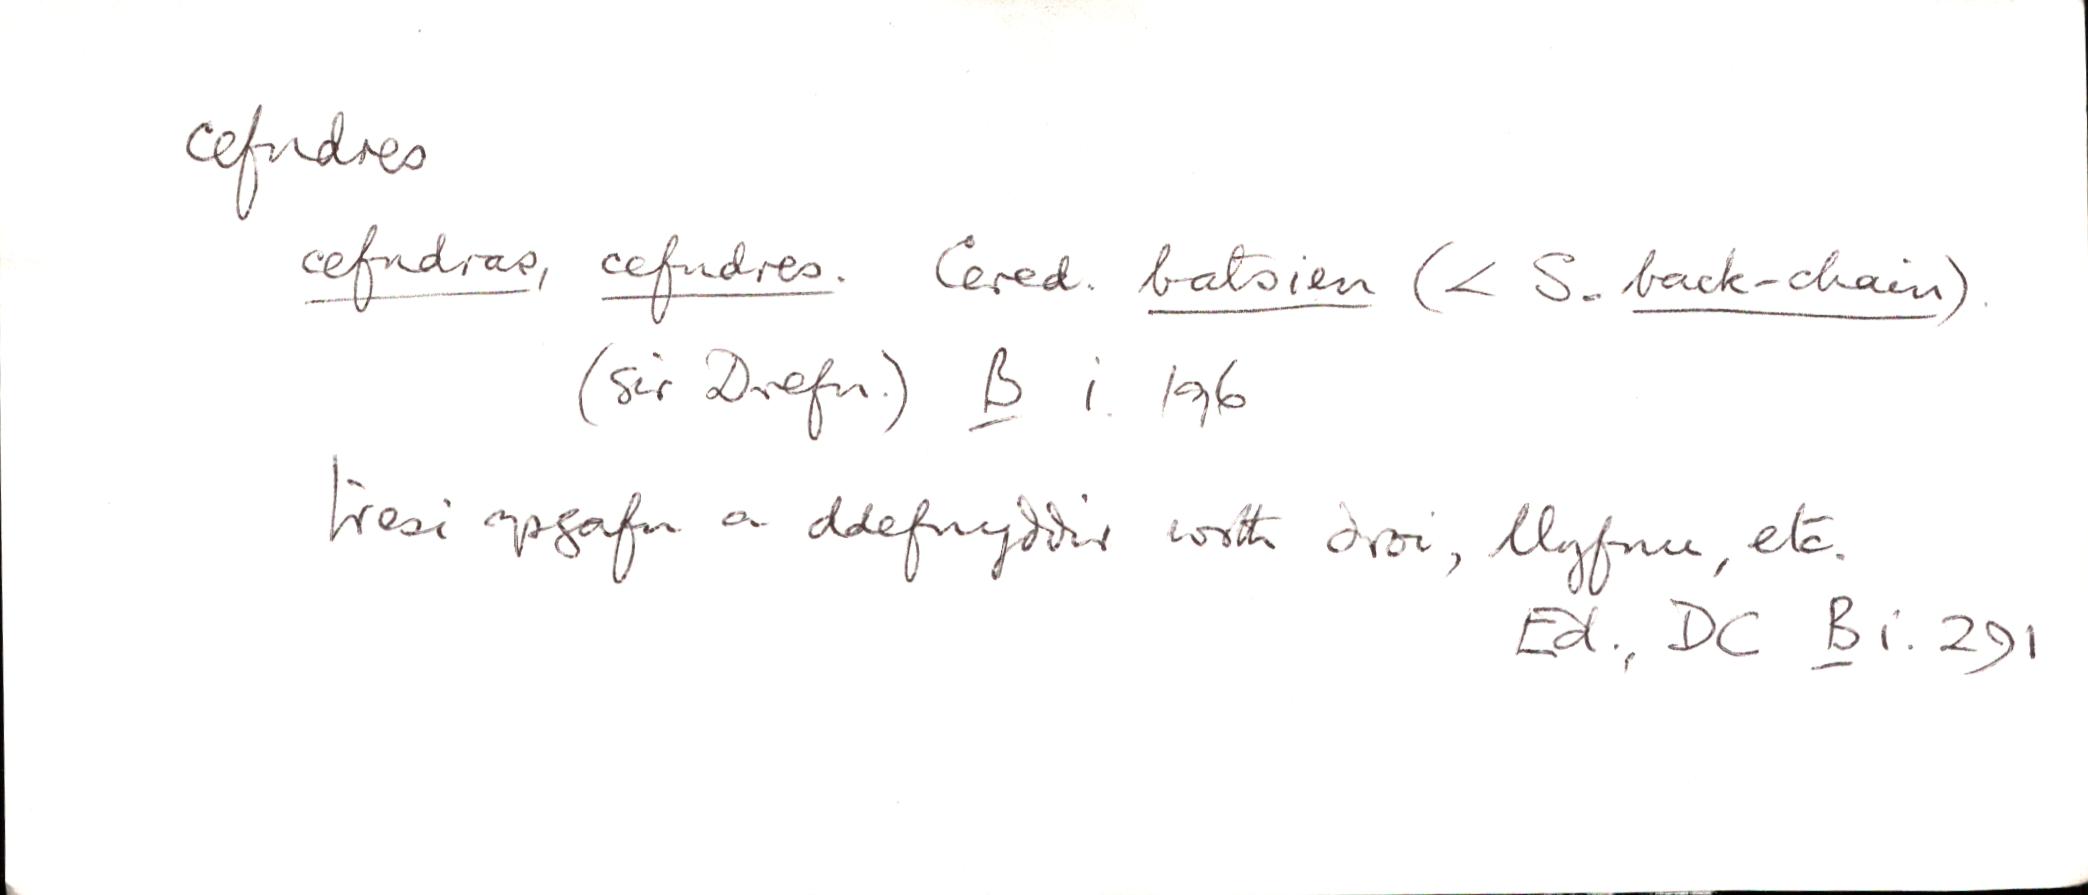 cefndres
cefndras, cefndres. Cered. batsien (< S. back-chain).
(Sir Drefn.) B i. 196
tresi ysgafn a ddefnyddir wrth droi, llyfnu, etc.
Ed., DC B i. 291